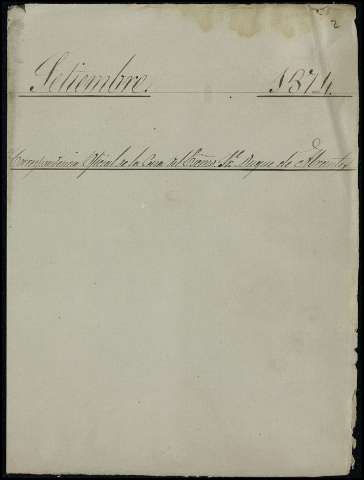 2
Setiembre. 1874.
Correspondencia Oficial de la Casa del Excmo. Sr. Duque de Abrantes